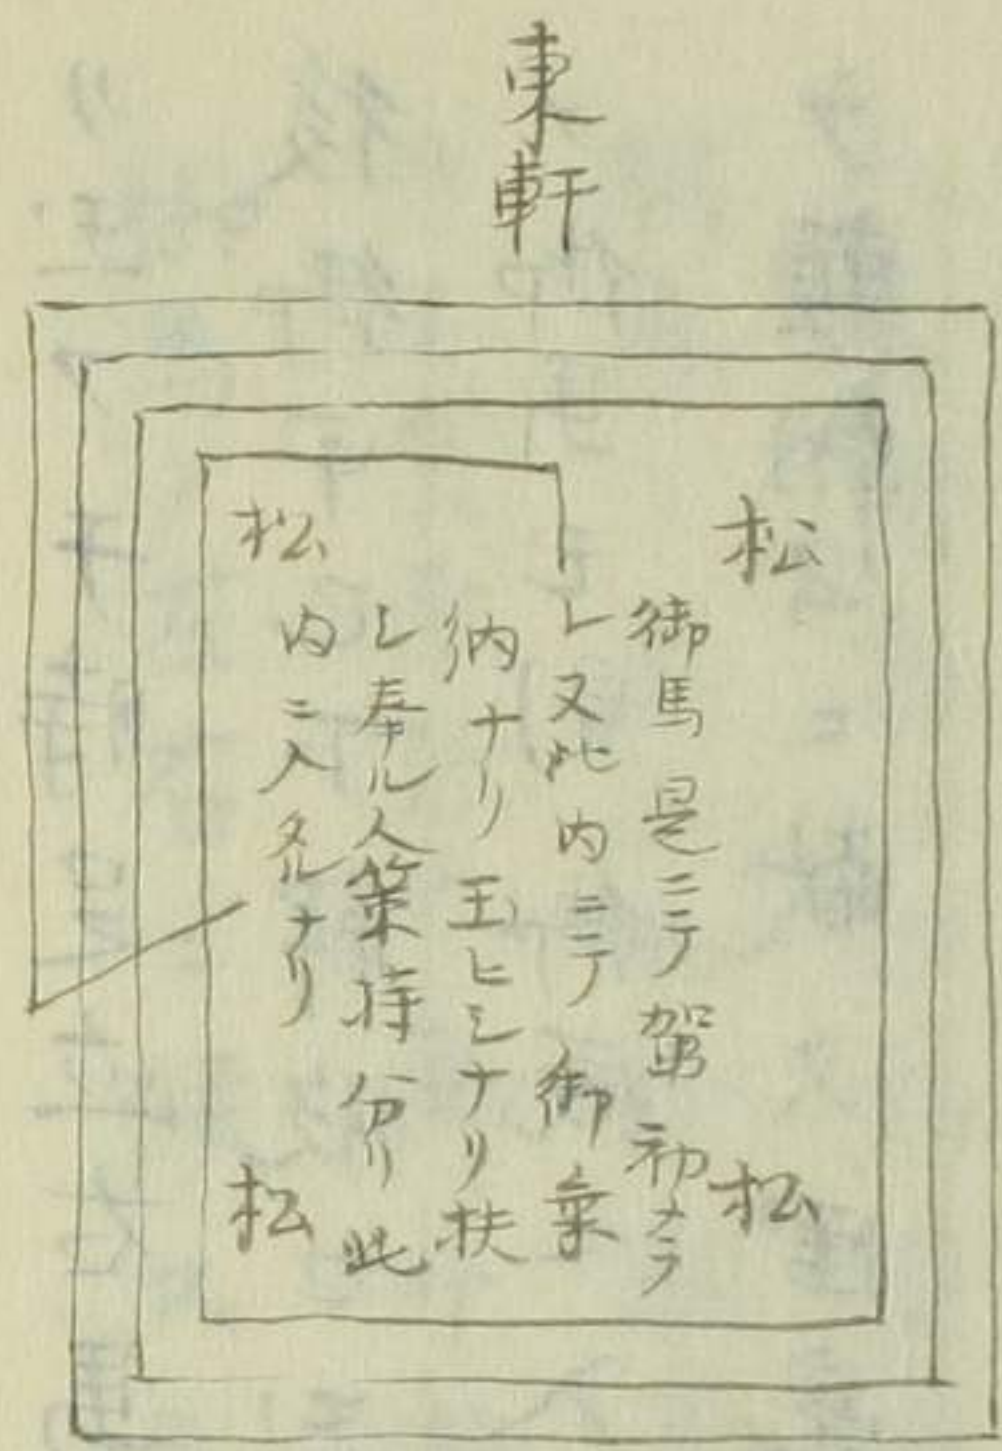 東軒
松
松
御馬是ニテ駕初メラ
レ又此内ニテ御乗
納ナリ玉ヒシナリ扶
シ奉ル人策持分リ此
内ニ入タルナリ
松
松